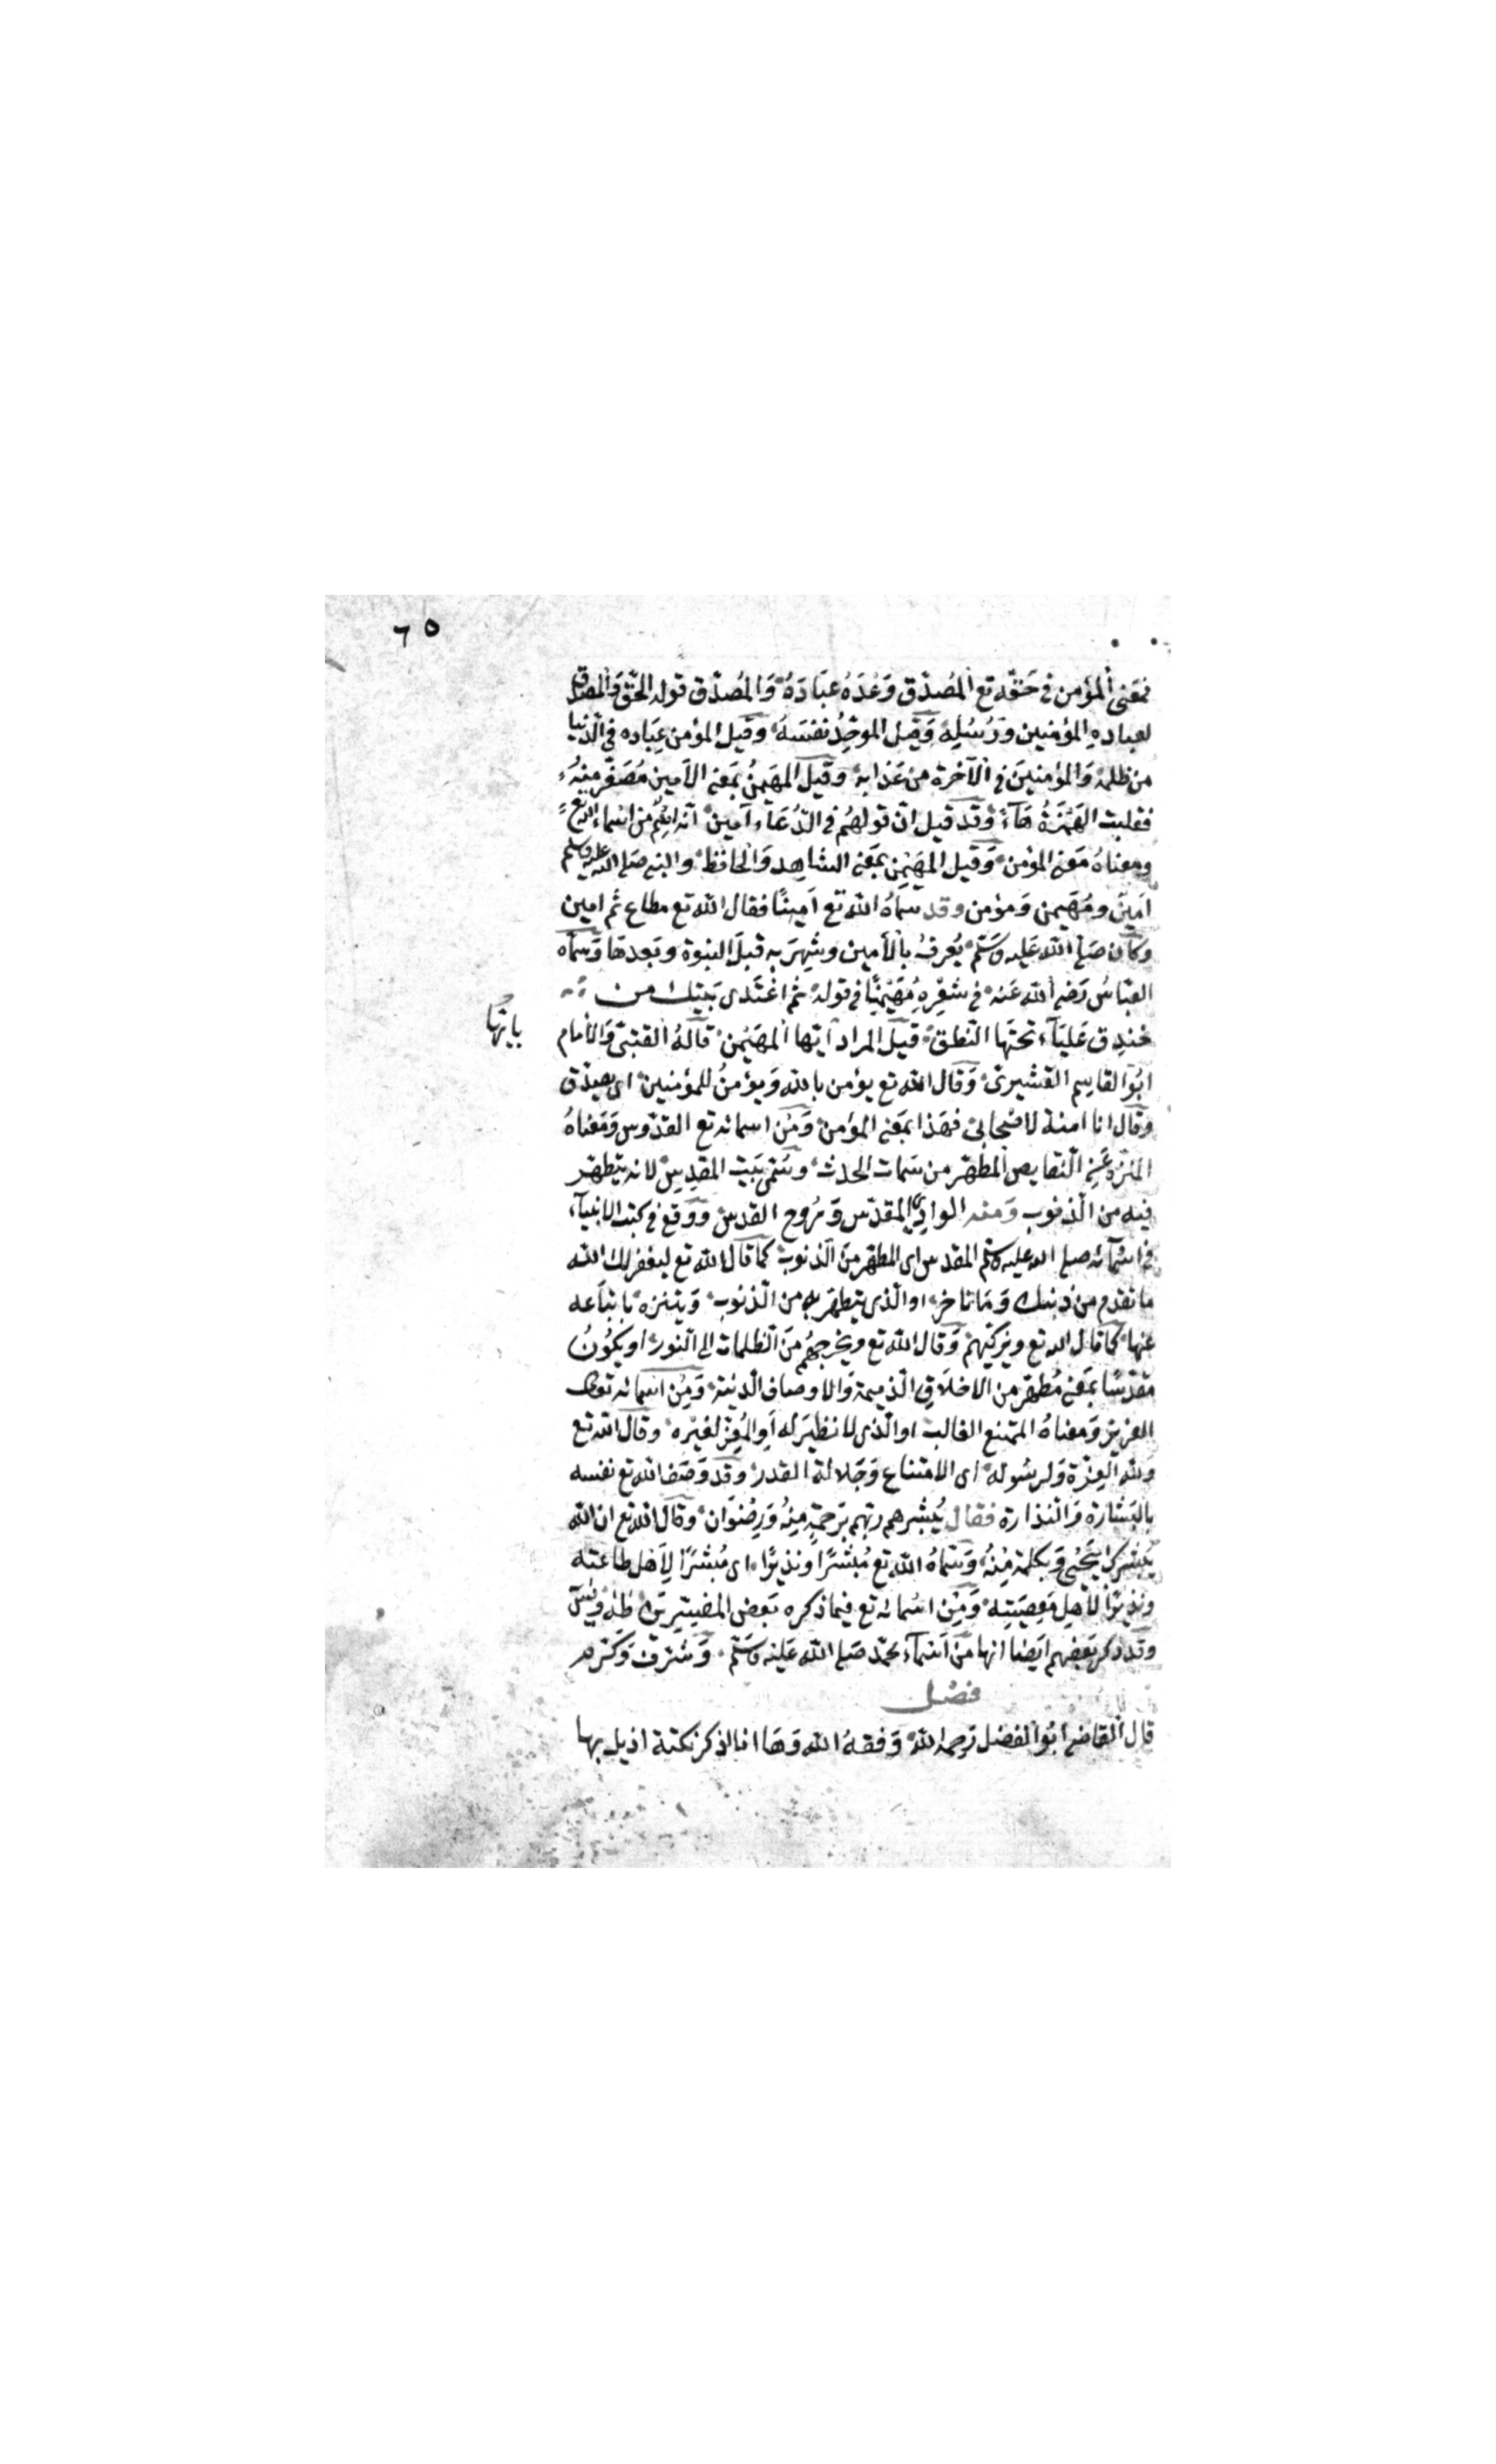 ٦٥
فمعنى المؤمن في حقه تع المُصدّق وَعْدَهُ عبَادَهُ وَالمُصدّق قوله الحَقّ وَالمصدق
لعباده المؤمنين وَرُسُلِهِ وَقيل الموحّدُ نفسَهُ وقيل المؤمن عِبَاده في الدّنيا
من ظلمه وَالمؤمنينَ في الآخرة من عَذابه وقيل المهَيمنُ بمَعنى الاَمين مُصَغّر مِنهُ
فقلبت الهَمْزَةُ هَاءً وَقد قيل انّ قولهُم في الدّعَاء آمين انّه اسْمٌ من اسْماء الله تع
ومعناهُ مَعنى المؤمن وَقيل المهَيْمن بمَعنى الشاهِد وَالحافظ والنبي صَلى الله عليه وسلم
امينٌ ومُهَيمن وَمؤمن وقد سَماهُ الله تع اَمِينًا فقال الله تع مطاع ثم امين
وكان صَلى الله عَليه وَسَلّم يُعرفُ بالأمين وشُهِرَ به قبلَ النبوة وبَعدهَا وَسَماه
العَبّاسُ رَضي الله عَنه في شعْرِهِ مُهَيْمِنًا في قوله ثم اغْتَدى بَيتك من
خندِق عَليَاء تحتَها النّطق قيلَ المراد ايّها المهَيْمن قالهُ القتبيّ وَالأمام
ابُو القاسِم القشيري وَقال الله تع يؤمن بالله وَيؤمنُ للمؤمنين اى يصدّق
وقال انا امنة لاصْحابى فهَذا بمَعنى المؤمن وَمن اسمائه تع القدّوس وَمَعناهُ
المنزّه عَنِ النّقايص المطهّر من سَمات الحدث وسُمّى بَيت المقدِس لانه يتطهّر
فيه من الذّنوب وَمنه الوادِي المقدّس وَرُوح القدس وَوَقع في كتب الانبيآء
في اسْمآئه صلى الله عليه وسَلّم المقدس اى المطهّر من الذّنوب كما قال الله تع ليغفر لك الله
ما تقدّم من ذنبك وَمَا تاخر او الّذى يتطهّر به من الذّنوب وَيتنزه باتبَاعه
عنها كما قال الله تع ويزكّيهم وَقال الله تع ويخرجهُم مِنَ الظلمات الى النّور او يَكُونُ
مقدّسًا بمَعنى مُطهّر من الاخلاَقِ الذّميمة وَالاوصاف الدّنيّة وَمِن اسمائه تعالى
العزيز وَمعناهُ الممتنع الغالب او الّذى لا نظيرَ له اَو المُعِزّ لغيْره وقال الله تع
وَلله العِزّة وَلرسُوله اى الامتناع وَجَلالة القدر وقد وَصَف الله تع نفسه
بالبَشارة وَالنّذارة فقال يُبشّرهم ربّهم برَحمَةٍ مِنهُ وَرِضْوَان وقال الله تع ان الله
يُبَشّرك بيَحْيىٰ وَبكلمة مِنهُ وَسَمّاهُ الله تع مُبشّرًا ونذيرًا اى مُبَشّرًا لِاَهل طاعته
ونذيرًا لاهلِ مَعصِيَتِه وَمِن اسْمائه تع فيما ذكره بَعض المفسّرين طٰه ويٰسٓ
وقد ذكر بَعضهم ايضا انها من اَسْمآء محمّد صَلى الله عَليه وَسَلّم وَشرّف وَكرّم
فصْل
قال القاضى ابُو الفضل رَحمهُ الله وَفقهُ الله وَهَا انا اذكر نكتة اذيل بها
بايّها